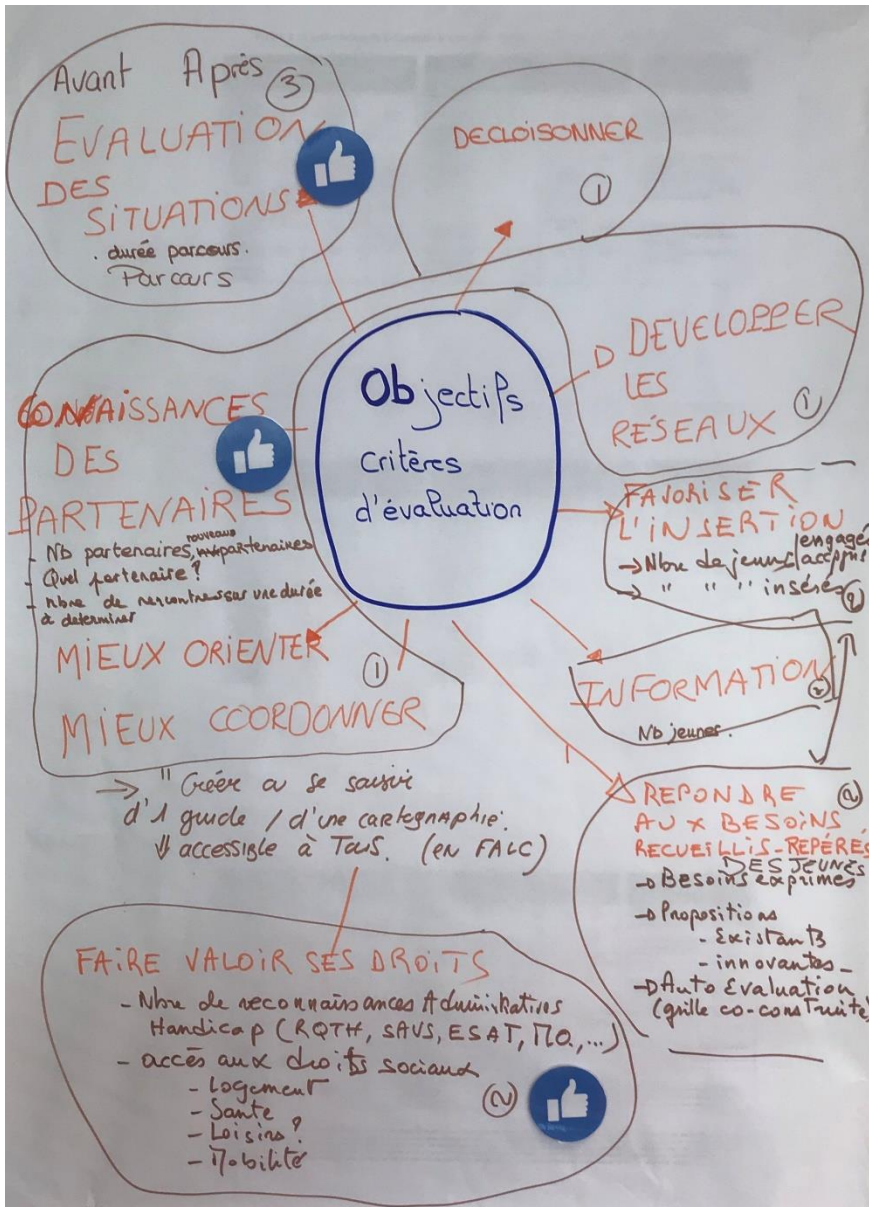 Avant Après ③
EVALUATION
DES
SITUATIONS
. durée parcours.
Parcours
DECLOISONNER
①
Objectifs
critères
d'évaluation
DEVELOPPER
LES
RÉSEAUX ①
CONNAISSANCES
DES
PARTENAIRES
- Nb partenaires, nouveaux partenaires
- Quel partenaire ?
- Nbre de rencontres sur une durée
à determiner
MIEUX ORIENTER
①
MIEUX COORDONNER
FAVORISER
L'INSERTION
→ Nbre de jeunes engagés
→ " " " insérés ②
INFORMATION
Nb jeunes.
→ " Créer ou se saisir
d'1 guide / d'une cartographie.
⇓ accessible à Tous. (en FALC)
REPONDRE ②
AUX BESOINS
RECUEILLIS-REPÉRÉS
DES JEUNES
→ Besoins exprimés
→ Propositions
- Existants
- innovantes -
→ Auto Evaluation
(grille co-construite)
FAIRE VALOIR SES DROITS
- Nbre de reconnaissances Administratives
Handicap (RQTH, SAVS, ESAT, MO, ...)
- accès aux droits sociaux
- Logement
- Santé
- Loisirs ?
- Mobilité
②